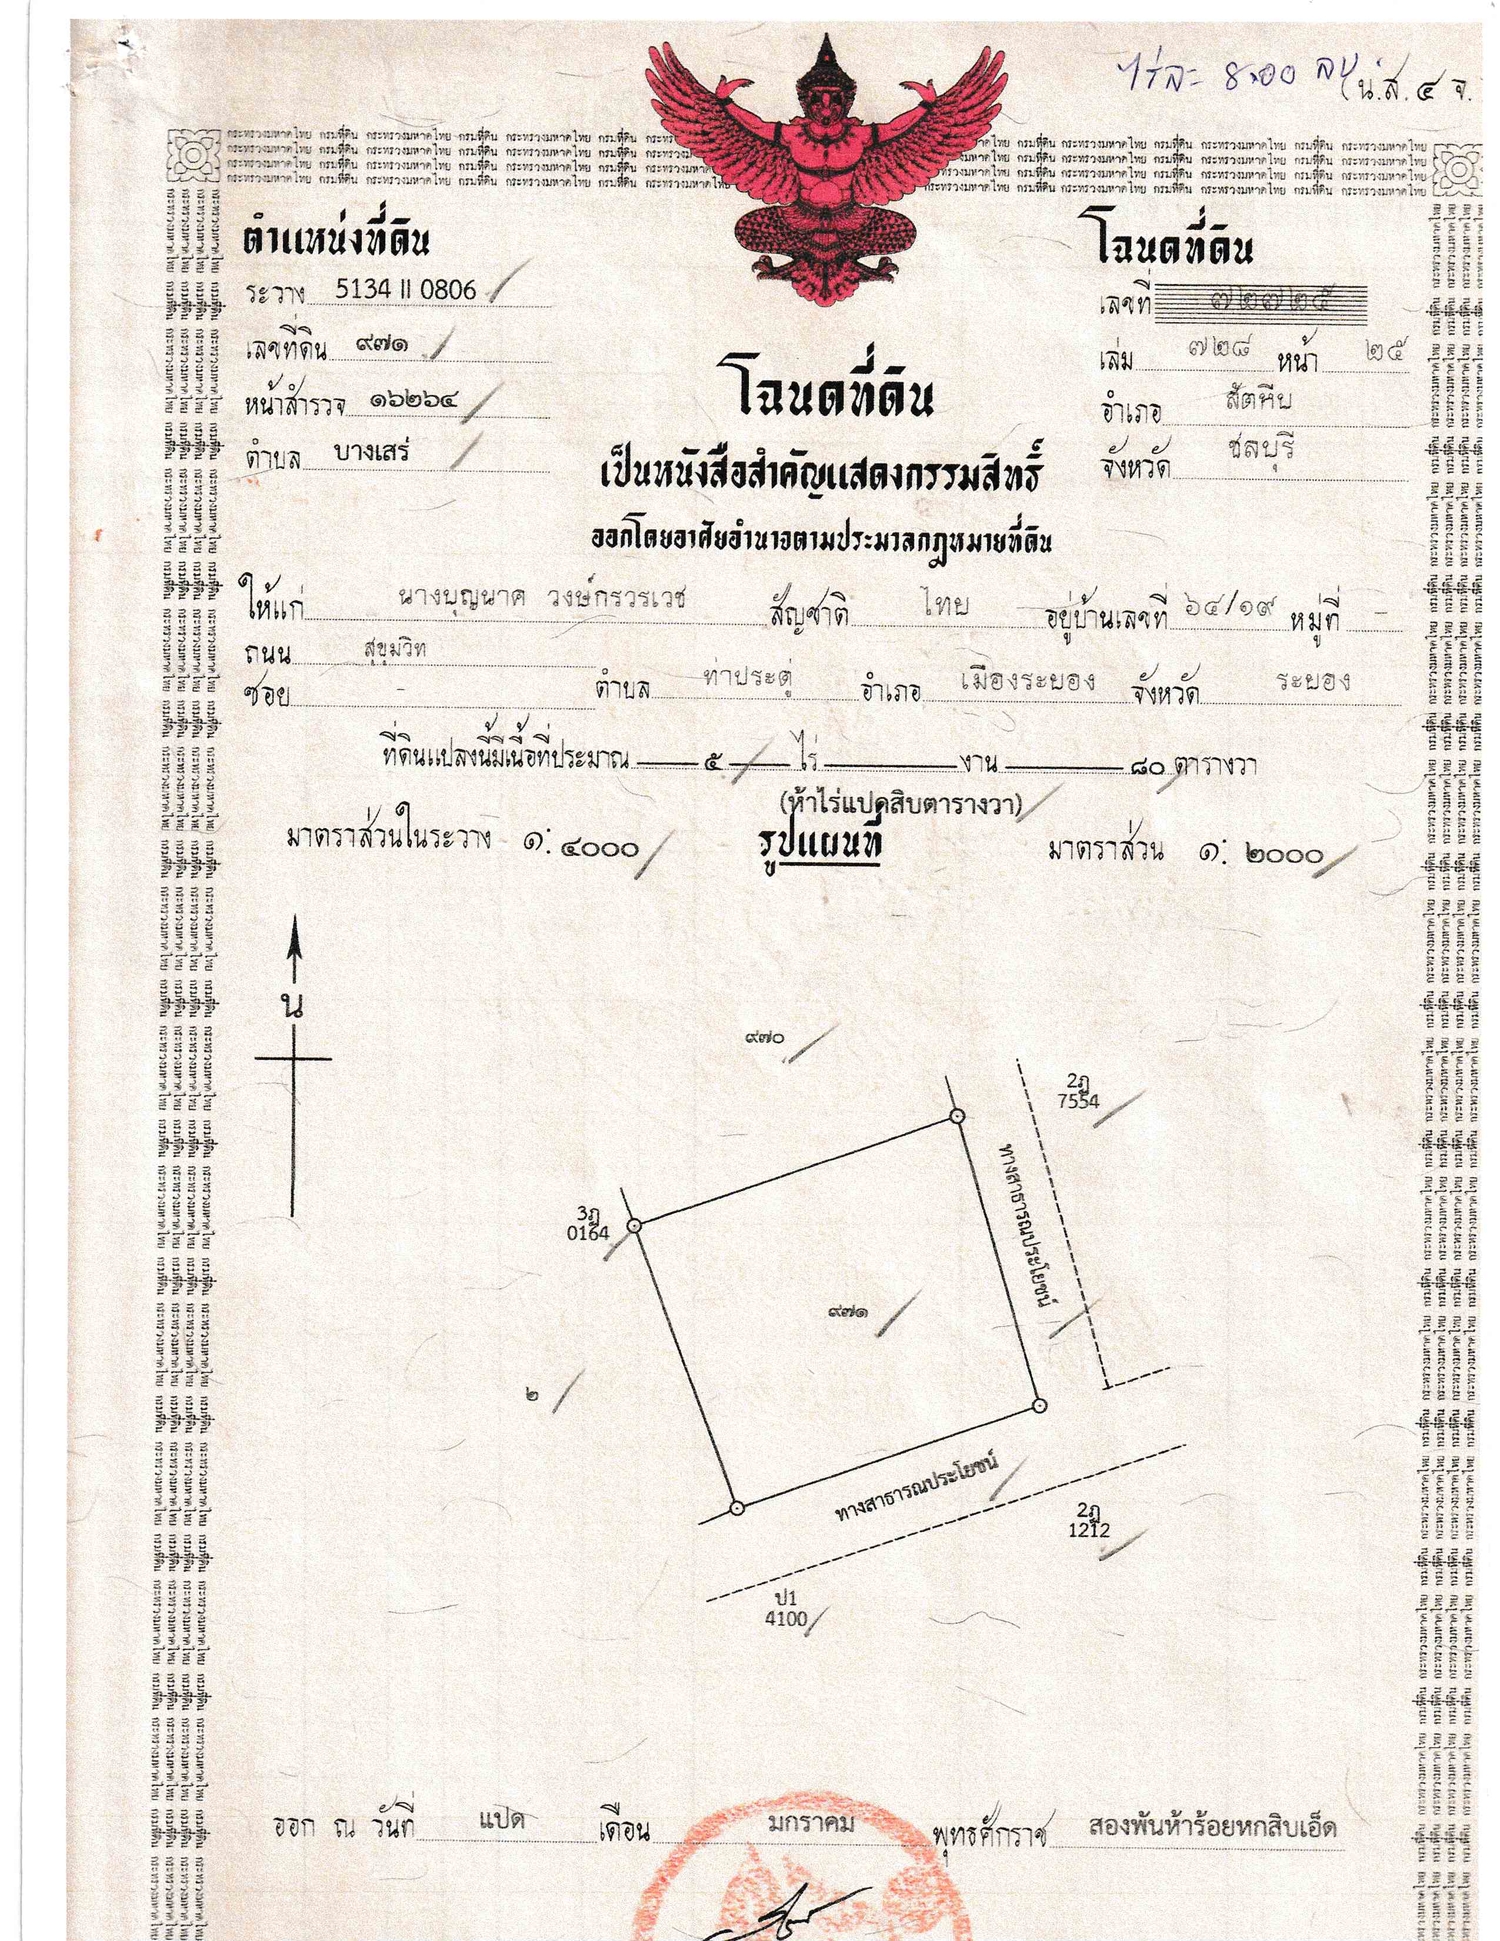 ไร่ละ ๘.๐๐ ลบ
น.ส. ๔ จ.
กระทรวงมหาดไทย กรมที่ดิน กระทรวงมหาดไทย กรมที่ดิน กระทรวงมหาดไทย กรมที่ดิน
ตำแหน่งที่ดิน
ระวาง 5134 II 0806
เลขที่ดิน ๙๗๑
หน้าสำรวจ ๑๖๒๖๔
ตำบล บางเสร่
โฉนดที่ดิน
เลขที่ ๗๒๗๒๕
เล่ม ๗๒๘ หน้า ๒๕
อำเภอ สัตหีบ
จังหวัด ชลบุรี
โฉนดที่ดิน
เป็นหนังสือสำคัญแสดงกรรมสิทธิ์
ออกโดยอาศัยอำนาจตามประมวลกฎหมายที่ดิน
ให้แก่ นางบุญนาค วงษ์กรวรเวช สัญชาติ ไทย อยู่บ้านเลขที่ ๖๔/๑๙ หมู่ที่ -
ถนน สุขุมวิท
ซอย - ตำบล ท่าประดู่ อำเภอ เมืองระยอง จังหวัด ระยอง
ที่ดินแปลงนี้มีเนื้อที่ประมาณ ๕ ไร่ งาน ๘๐ ตารางวา
(ห้าไร่แปดสิบตารางวา)
มาตราส่วนในระวาง ๑: ๔๐๐๐ รูปแผนที่ มาตราส่วน ๑: ๒๐๐๐
น
๙๗๐
2ฎ
7554
ทางสาธารณประโยชน์
3ฎ
0164
๙๗๑
๒
ทางสาธารณประโยชน์
2ฎ
1212
ป1
4100
ออก ณ วันที่ แปด เดือน มกราคม พุทธศักราช สองพันห้าร้อยหกสิบเอ็ด